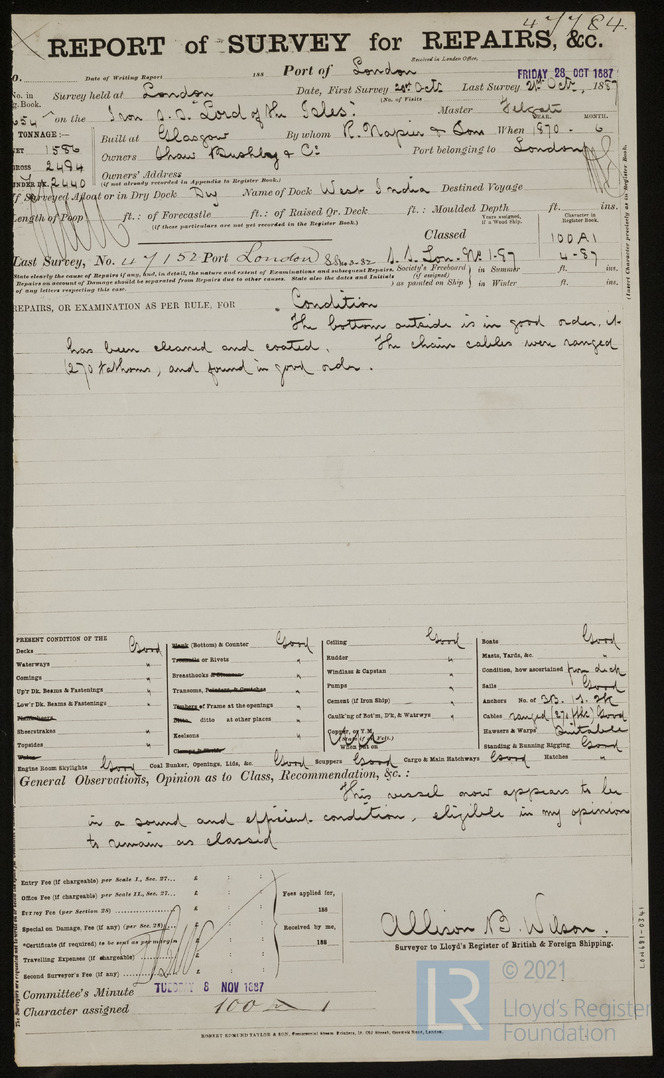 47784.
REPORT of SURVEY for REPAIRS, &c.
Received in London Office,
Date of Writing Report 188 Port of London FRIDAY 28 OCT 1887
No. in Survey held at London Date, First Survey Last Survey 21st Oct., 1887
Reg. Book. (No. of Visits
654 on the Iron S.S. "Lord of the Isles" Master Felgate
TONNAGE:— YEAR. MONTH.
1586 Built at Glasgow By whom R. Napier & Son When 1870 - 6
GROSS 2484 Owners Shaw Bushby & Co Port belonging to London
UNDER DK. 2440 Owners' Address
(if not already recorded in Appendix to Register Book.)
If Surveyed Afloat or in Dry Dock Dry Name of Dock West India Destined Voyage
Length of Poop ft.: of Forecastle ft.: of Raised Qr. Deck ft.: Moulded Depth ft. ins.
(If these particulars are not yet recorded in the Register Book.)
Years assigned, if a Wood Ship.
Character in Register Book.
Classed 100A1
Last Survey, No. 47152 Port London S.S. Lon. No. 1-87 4-87
State clearly the cause of Repairs if any, and, in detail, the nature and extent of Examinations and subsequent Repairs.
Repairs on account of Damage should be separated from Repairs due to other causes. State also the dates and Initials
of any letters respecting this case.
Society's Freeboard (if assigned) as painted on Ship
in Summer ft. ins.
in Winter ft. ins.
(Insert Character precisely as in Register Book.
REPAIRS, OR EXAMINATION AS PER RULE, FOR Condition
The bottom outside is in good order, it
has been cleaned and coated. The chain cables were ranged
(270 fathoms, and found in good order.
PRESENT CONDITION OF THE
Decks Good
Waterways "
Comings "
Up'r Dk. Beams & Fastenings "
Low'r Dk. Beams & Fastenings "
Sheerstrakes "
Topsides "
Plank (Bottom) & Counter Good
Treenails or Rivets "
Breasthooks & Stemson "
Transoms, Pointers, & Crutches "
Timbers of Frame at the openings "
Ditto ditto at other places "
Keelsons "
Ceiling Good
Rudder "
Windlass & Capstan "
Pumps "
Cement (if Iron Ship) "
Caulk'ng of Bot'm, D'k, & Waterways "
Copper, or Y.M.
(State if on Felt.)
When put on
Boats Good
Masts, Yards, &c. "
Condition, how ascertained from deck
Sails Good
Anchors No. of 3B. 1S. 2K
Cables ranged (270 fths) Good
Hawsers & Warps Suitable
Standing & Running Rigging Good
Engine Room Skylights Good Coal Bunker, Openings, Lids, &c. Good Scuppers Good Cargo & Main Hatchways Good Hatches "
General Observations, Opinion as to Class, Recommendation, &c.:
This vessel now appears to be
in a sound and efficient condition, eligible in my opinion
to remain as classed
Entry Fee (if chargeable) per Scale I., Sec. 27... £ : :
Office Fee (if chargeable) per Scale II., Sec. 27... £ : :
Survey Fee (per Section 28) £ : :
Special on Damage, Fee (if any) (per Sec. 28) £ : :
*Certificate (if required) to be sent as per margin £ : :
Travelling Expenses (if chargeable) £ : :
Second Surveyor's Fee (if any) £ : :
Fees applied for,
188
Received by me,
188
Allison B. Wilson.
Surveyor to Lloyd's Register of British & Foreign Shipping.
Committee's Minute TUESDAY 8 NOV 1887
Character assigned 100 A 1
ROBERT EDMUND TAYLOR & SON, Commercial Steam Printers, 19, Old Street, Goswell Road, London.
LR
© 2021
Lloyd's Register
Foundation